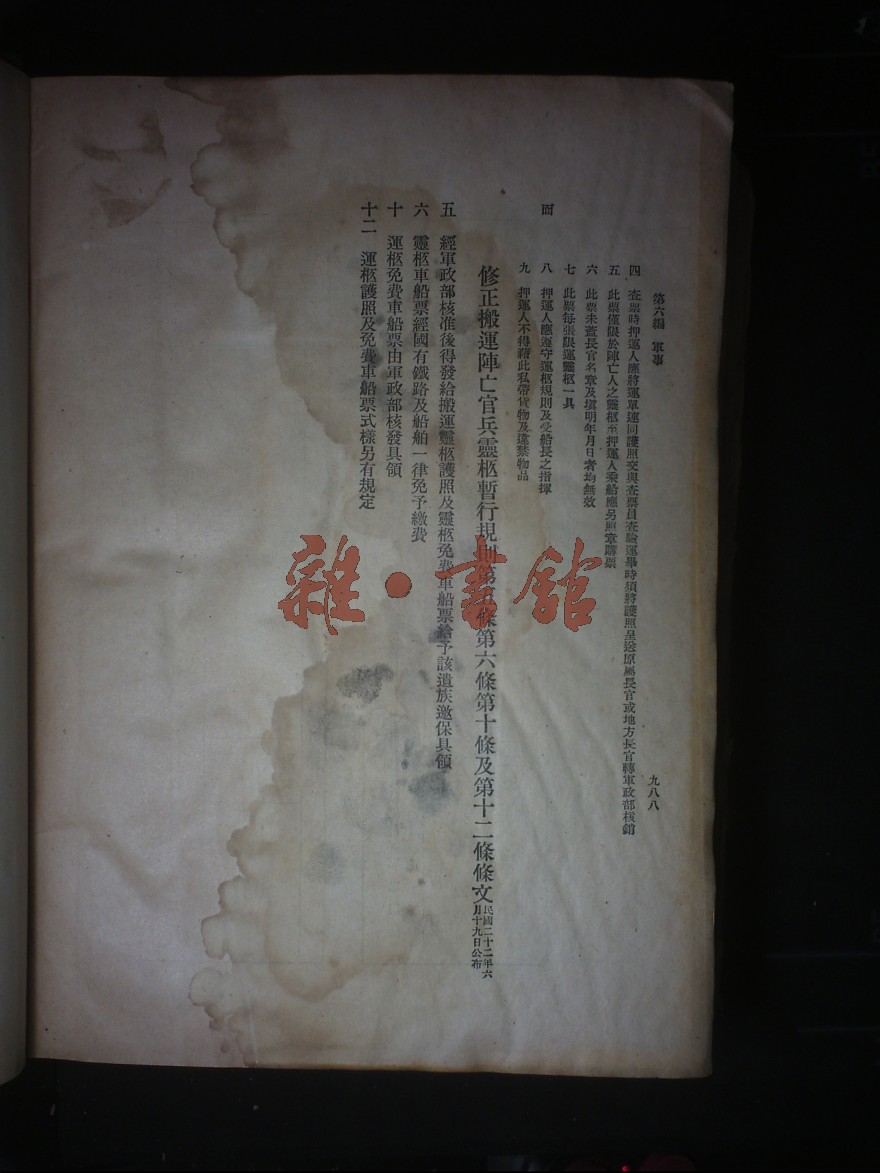 第六編　軍事
九八八
四　查票時押運人應將運單連同護照交與查票員查驗運畢時須將護照呈送原屬長官或地方長官轉軍政部核銷
五　此票僅限於陣亡人之靈柩至押運人乘船應另照章購票
六　此票未蓋長官名章及塡明年月日者均無效
七　此票每張限運靈柩一具
面　八　押運人應遵守運柩規則及受船長之指揮
九　押運人不得藉此私帶貨物及違禁物品
修正搬運陣亡官兵靈柩暫行規則第五條第六條第十條及第十二條條文
民國二十二年六
月十九日公布
五　經軍政部核准後得發給搬運靈柩護照及靈柩免費車船票給予該遺族邀保具領
六　靈柩車船票經國有鐵路及船舶一律免予繳費
十　運柩免費車船票由軍政部核發具領
十二　運柩護照及免費車船票式樣另有規定
雜·書館